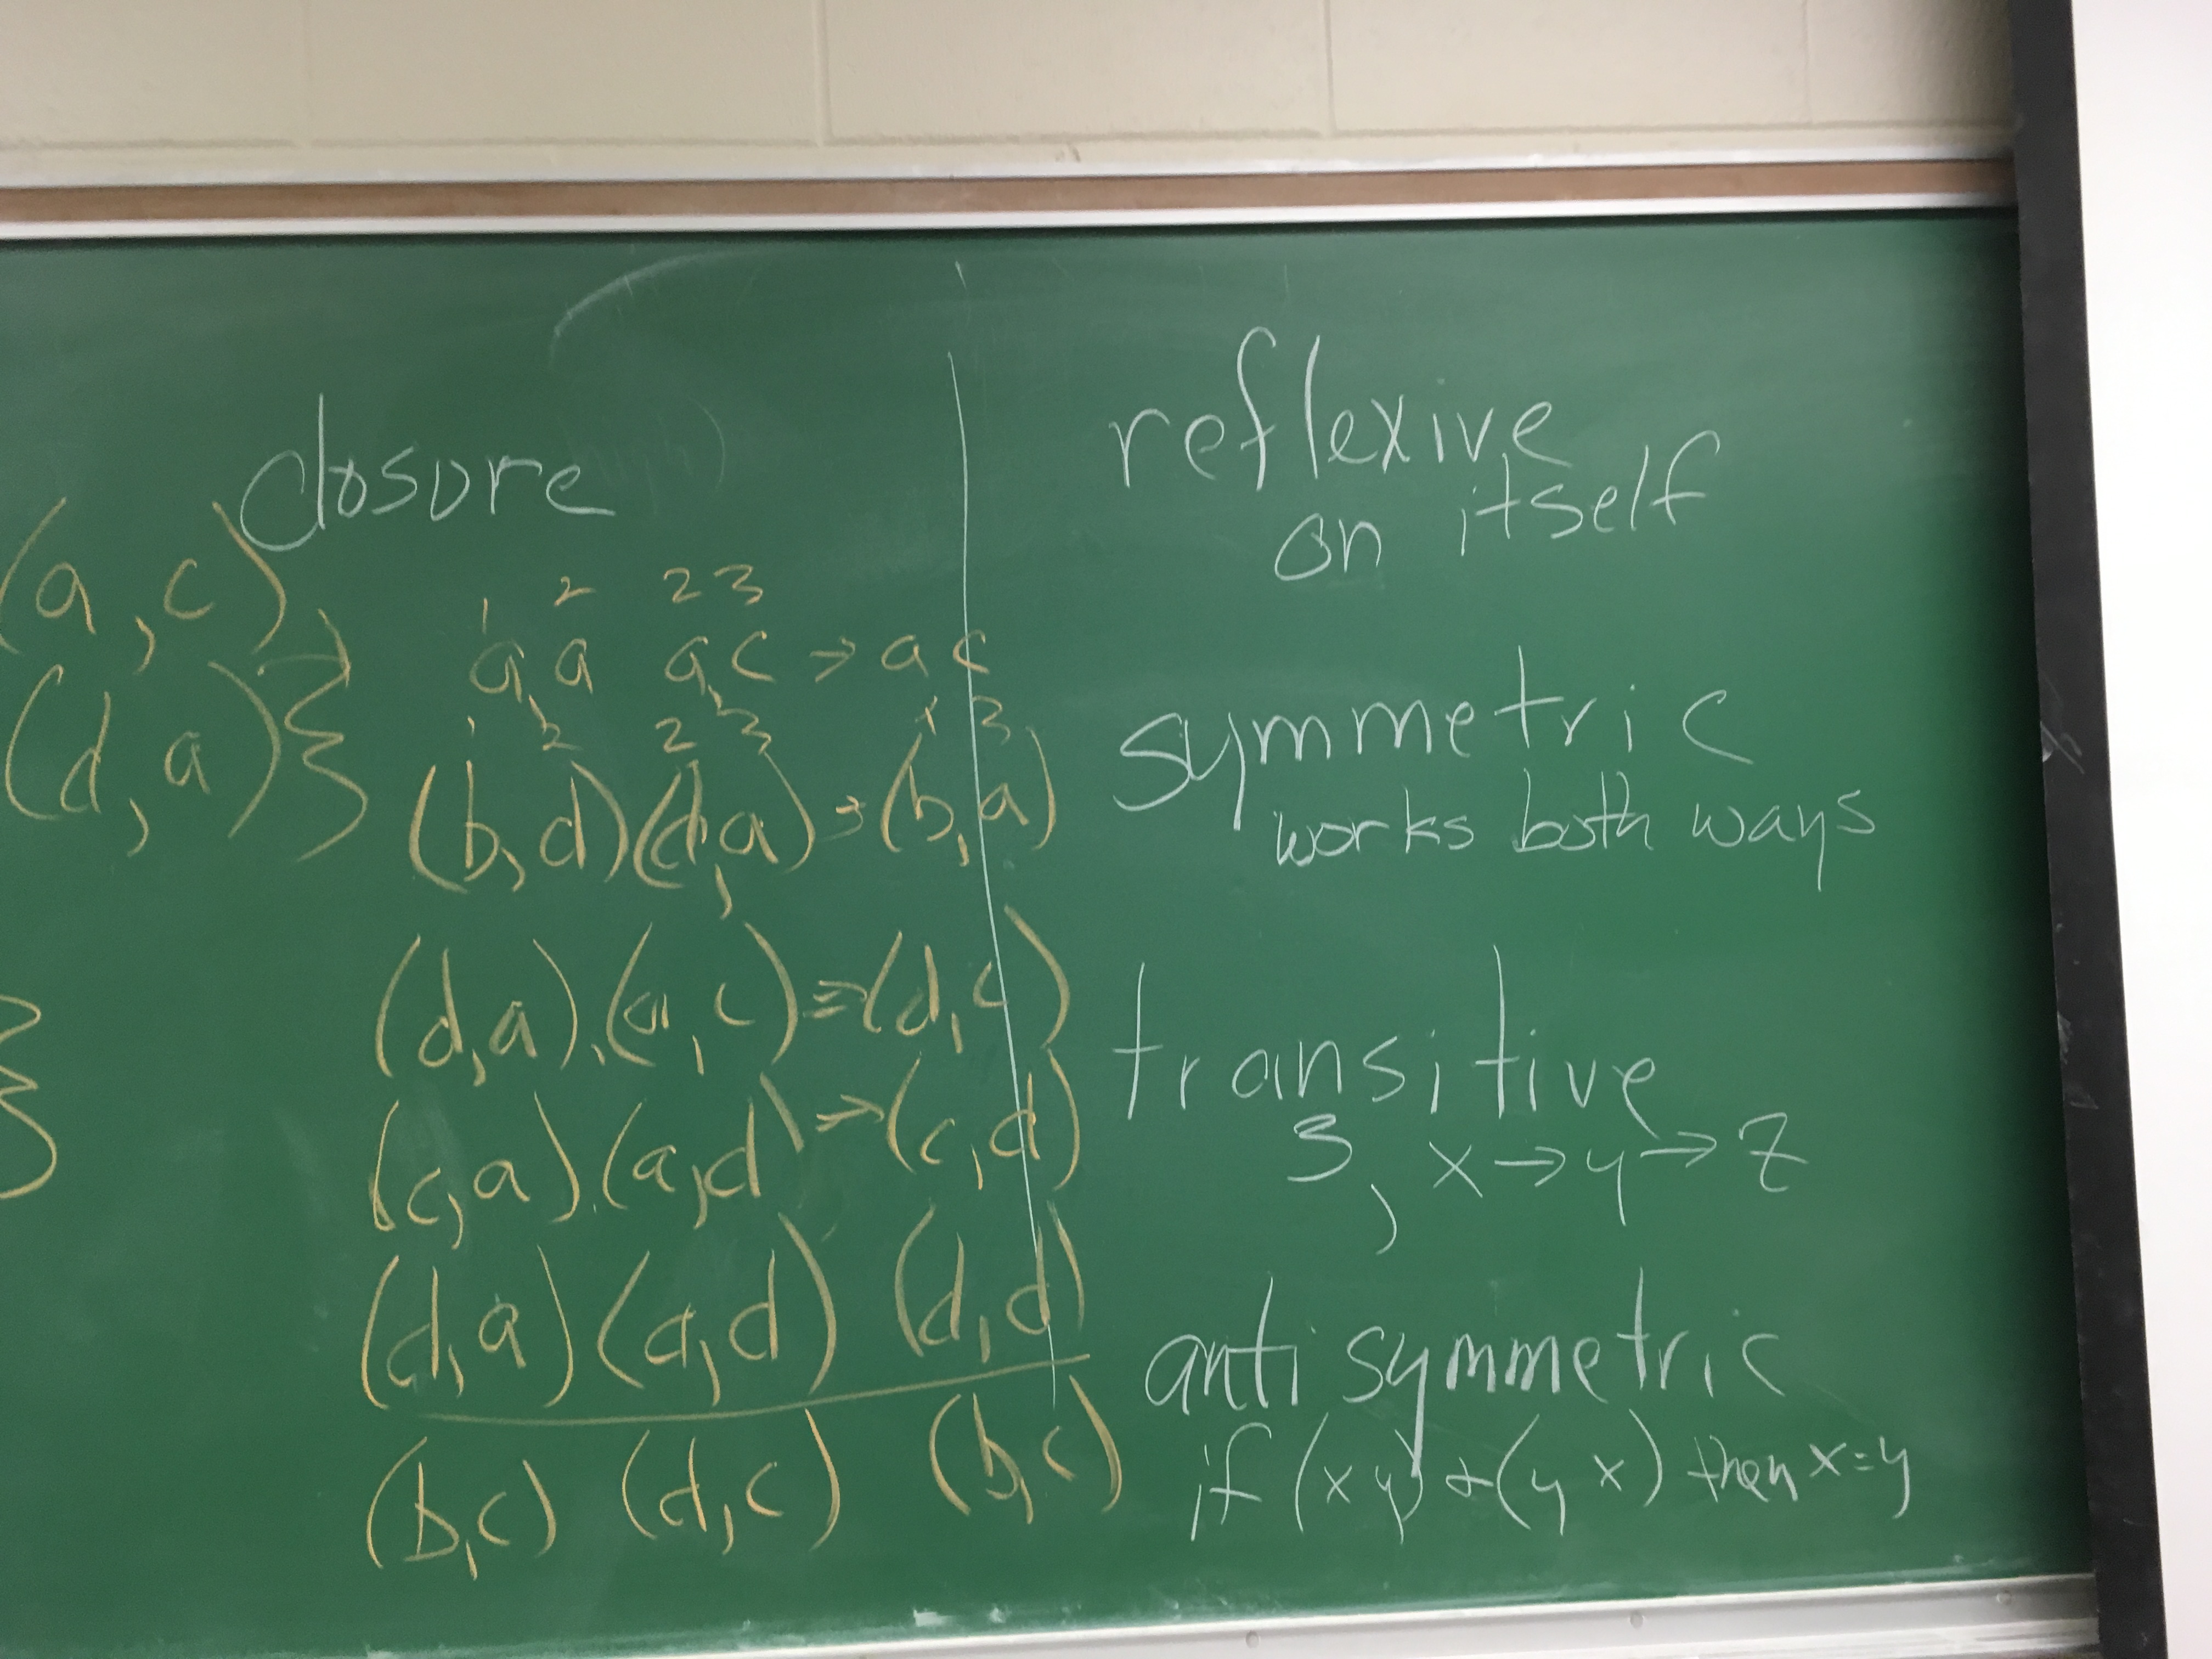 closure
(a,c),
(d,a)}
1 2 2 3
a,a a,c → a c
1 2 2 3 1 3
(b,d)(d,a) → (b,a)
(d,a),(a,c) ⇒ (d,c)
(c,a),(a,d) → (c,d)
(d,a)(a,d) (d,d)
(b,c) (d,c) (b,c)
}
}
reflexive
on itself
symmetric
works both ways
transitive
3, x → y → z
anti symmetric
if (x y) + (y x) then x=y